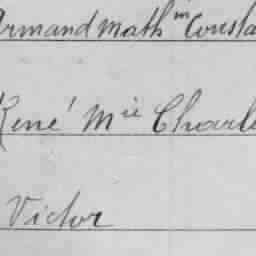 Armand Math^in Consta
René M^ie Charle
Victor